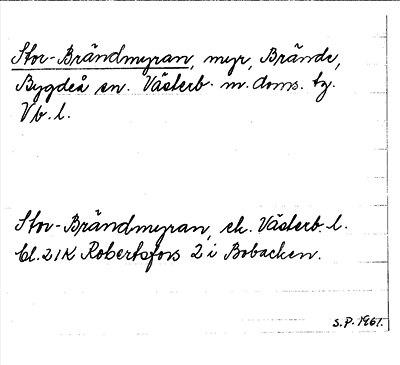 Stor-Brändmyran, myr, Brände,
Bygdeå sn. Västerb. m. doms. tg.
Vb. l.
Stor-Brändmyran, ek. Västerb. l.
bl. 21K Robertsfors 2 i Bobacken.
S.P. 1961.